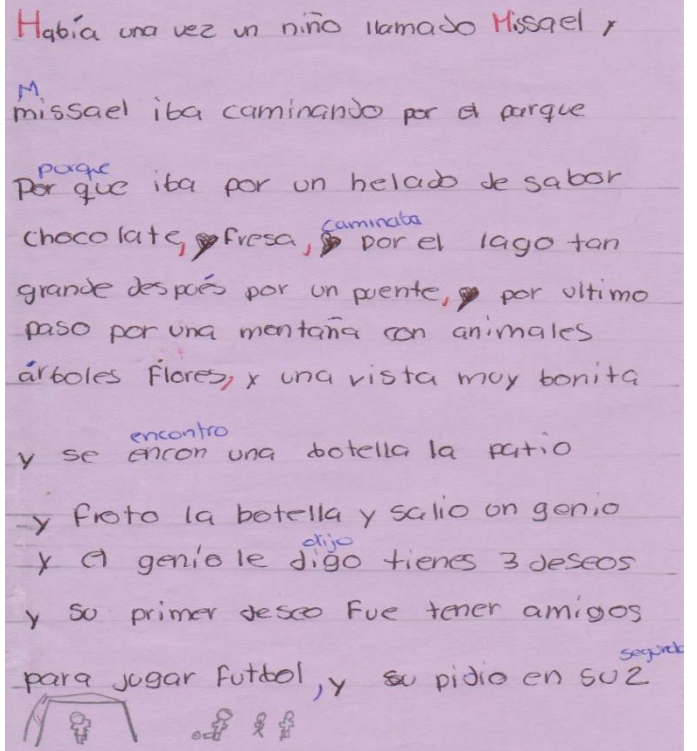 Había una vez un niño llamado Missael y
M
missael iba caminando por el parque
porque
Por que iba por un helado de sabor
caminaba
chocolate, y fresa, y por el lago tan
grande después por un puente, y por ultimo
paso por una montaña con animales
árboles Flores, y una vista muy bonita
encontro
y se encon una botella la patio
y froto la botella y salio un genio
dijo
y el genio le digo tienes 3 deseos
y su primer deseo Fue tener amigos
segundo
para jugar futbol, y su pidio en su 2